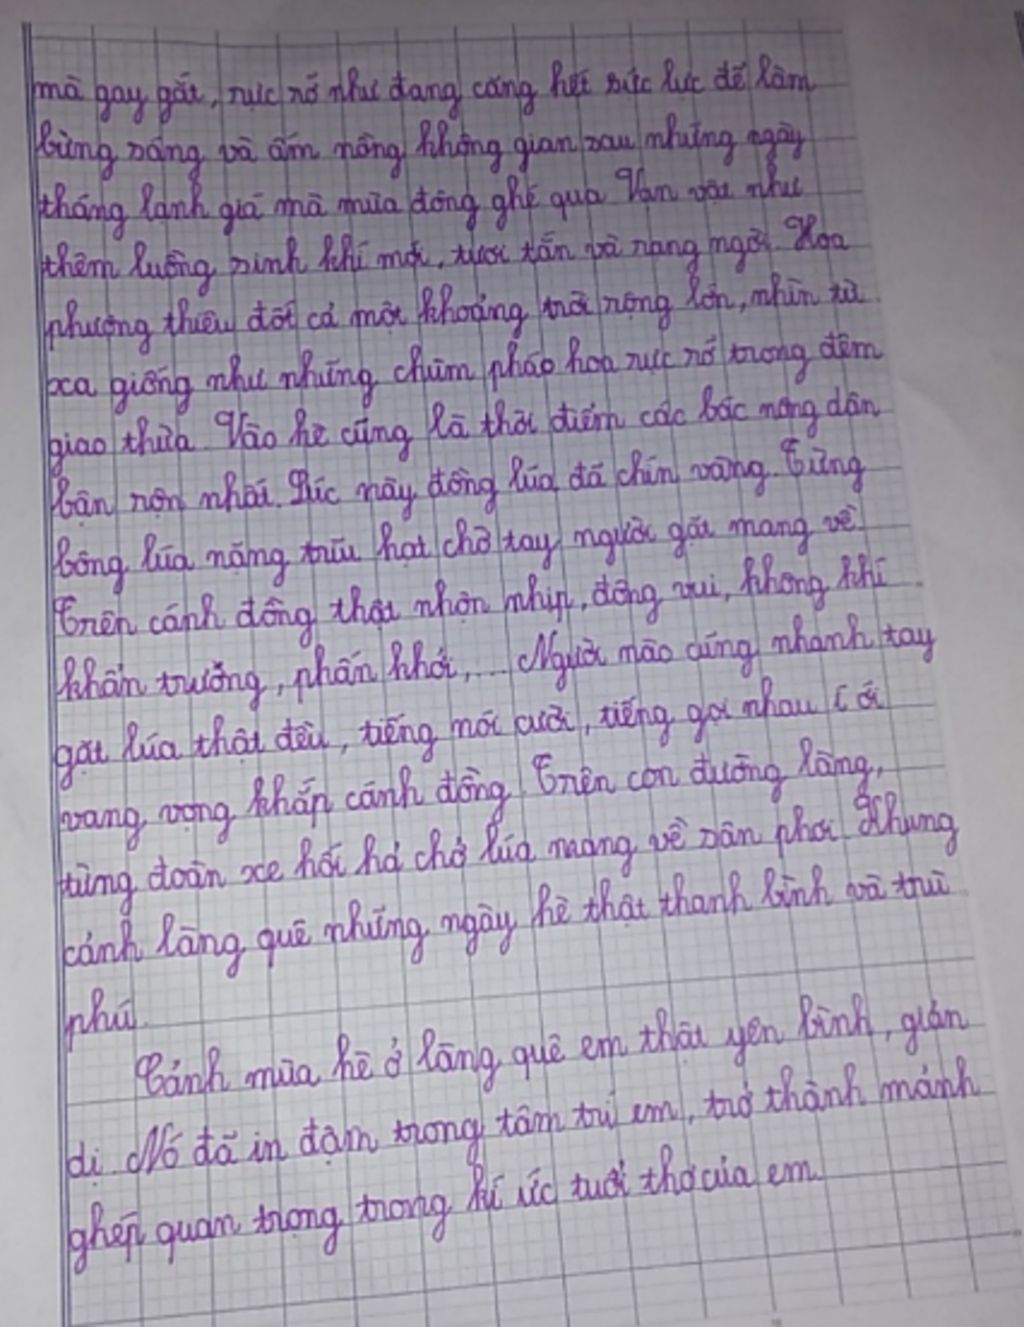 mà gay gắt, rực rỡ như đang cống hết sức lực để làm
bừng sáng và ấm nồng không gian sau những ngày
tháng lạnh giá mà mùa đông ghé qua. Vạn vật như
thêm luồng sinh khí mới, tươi tắn và rạng ngời. Hoa
phượng thiêu đốt cả một khoảng trời rộng lớn, nhìn từ
xa giống như những chùm pháo hoa rực rỡ trong đêm
giao thừa. Vào hè cũng là thời điểm các bác nông dân
bận rộn nhất. Lúc này đồng lúa đã chín vàng. Từng
bông lúa nặng trĩu hạt chờ tay người gặt mang về.
Trên cánh đồng thật nhộn nhịp, đông vui, không khí
khẩn trương, phấn khởi,... Người nào cũng nhanh tay
gặt lúa thật đều, tiếng nói cười, tiếng gọi nhau í ới
vang vọng khắp cánh đồng. Trên con đường làng,
từng đoàn xe hối hả chở lúa mang về sân phơi. Khung
cảnh làng quê những ngày hè thật thanh bình và trù
phú.
Cảnh mùa hè ở làng quê em thật yên bình, giản
dị. Nó đã in đậm trong tâm trí em, trở thành mảnh
ghép quan trọng trong kí ức tuổi thơ của em.